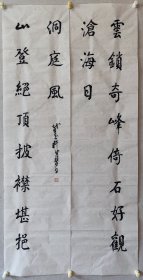 雲鎖奇峰倚石好觀
滄海日
山登絕頂披襟堪挹
洞庭風